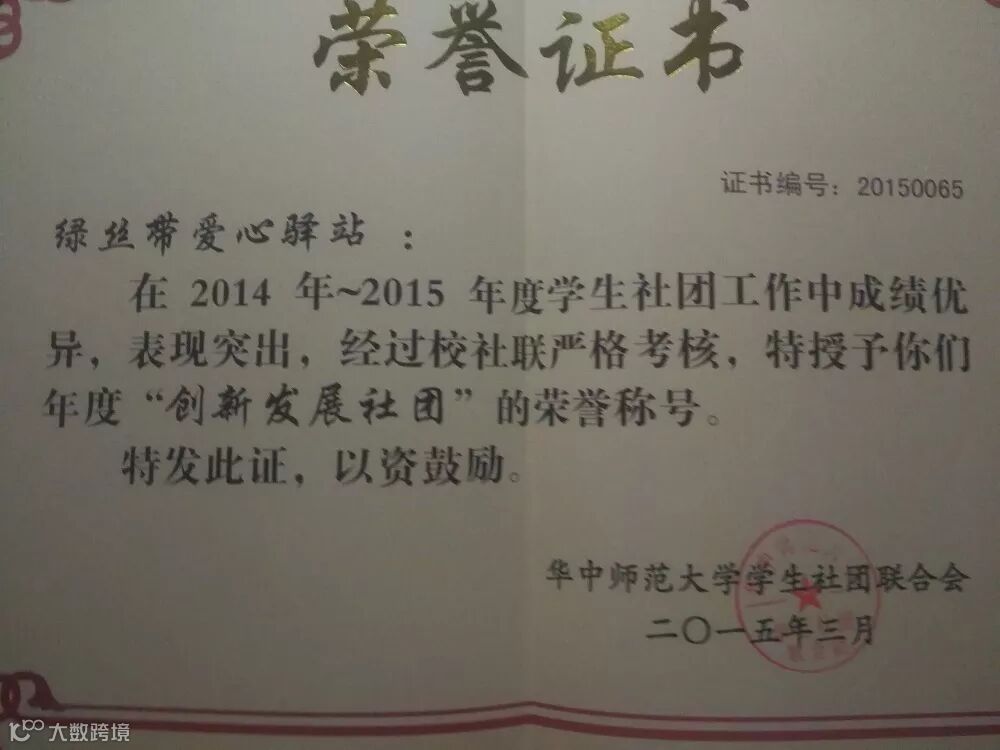 荣誉证书
证书编号：20150065
绿丝带爱心驿站：
在 2014 年~2015 年度学生社团工作中成绩优
异，表现突出，经过校社联严格考核，特授予你们
年度“创新发展社团”的荣誉称号。
特发此证，以资鼓励。
华中师范大学学生社团联合会
二〇一五年三月
大数跨境